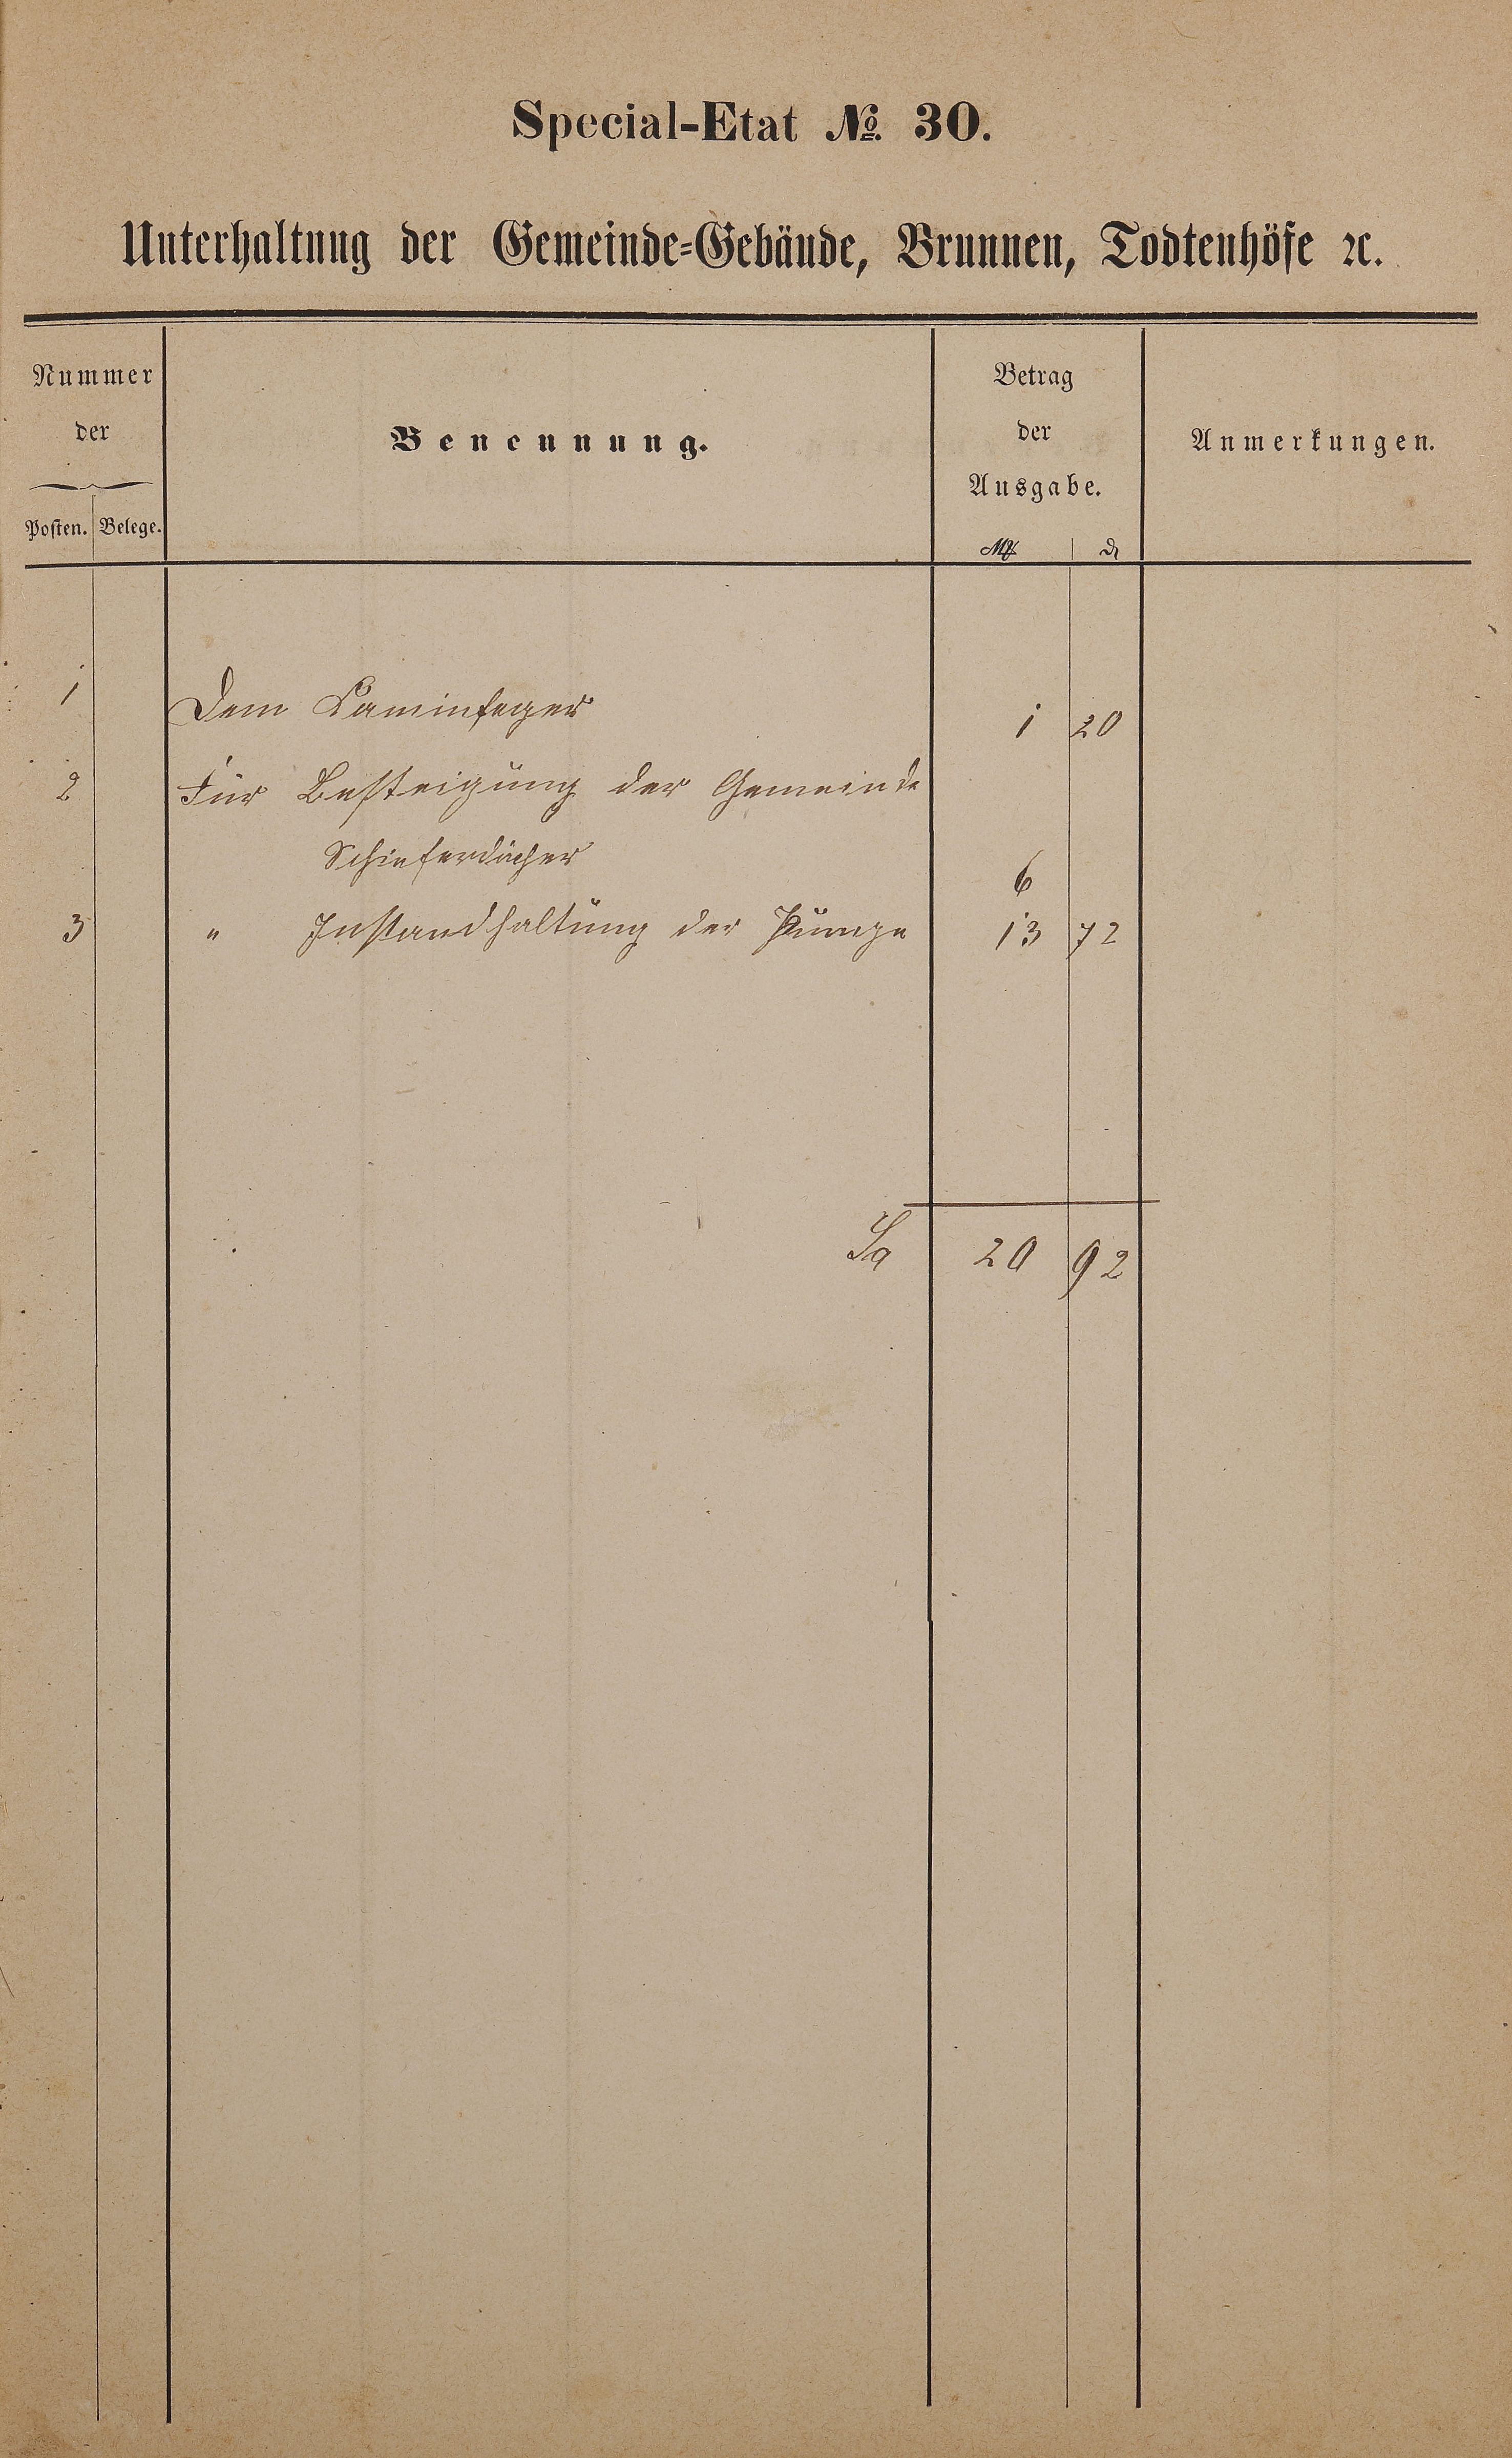 Special-Etat № 30.
Unterhaltung der Gemeinde-Gebäude, Brunnen, Todtenhöfe ꝛc.
Nummer
der
Posten. Belege.
Benennung.
Betrag
der
Ausgabe.
Mk ₰
Anmerkungen.
1 Dem Kaminfeger 1 20
2 Für Besteigung der Gemeinde
Schieferdächer 6
3 " Instandhaltung der Pumpe 13 72
Sa 20 92